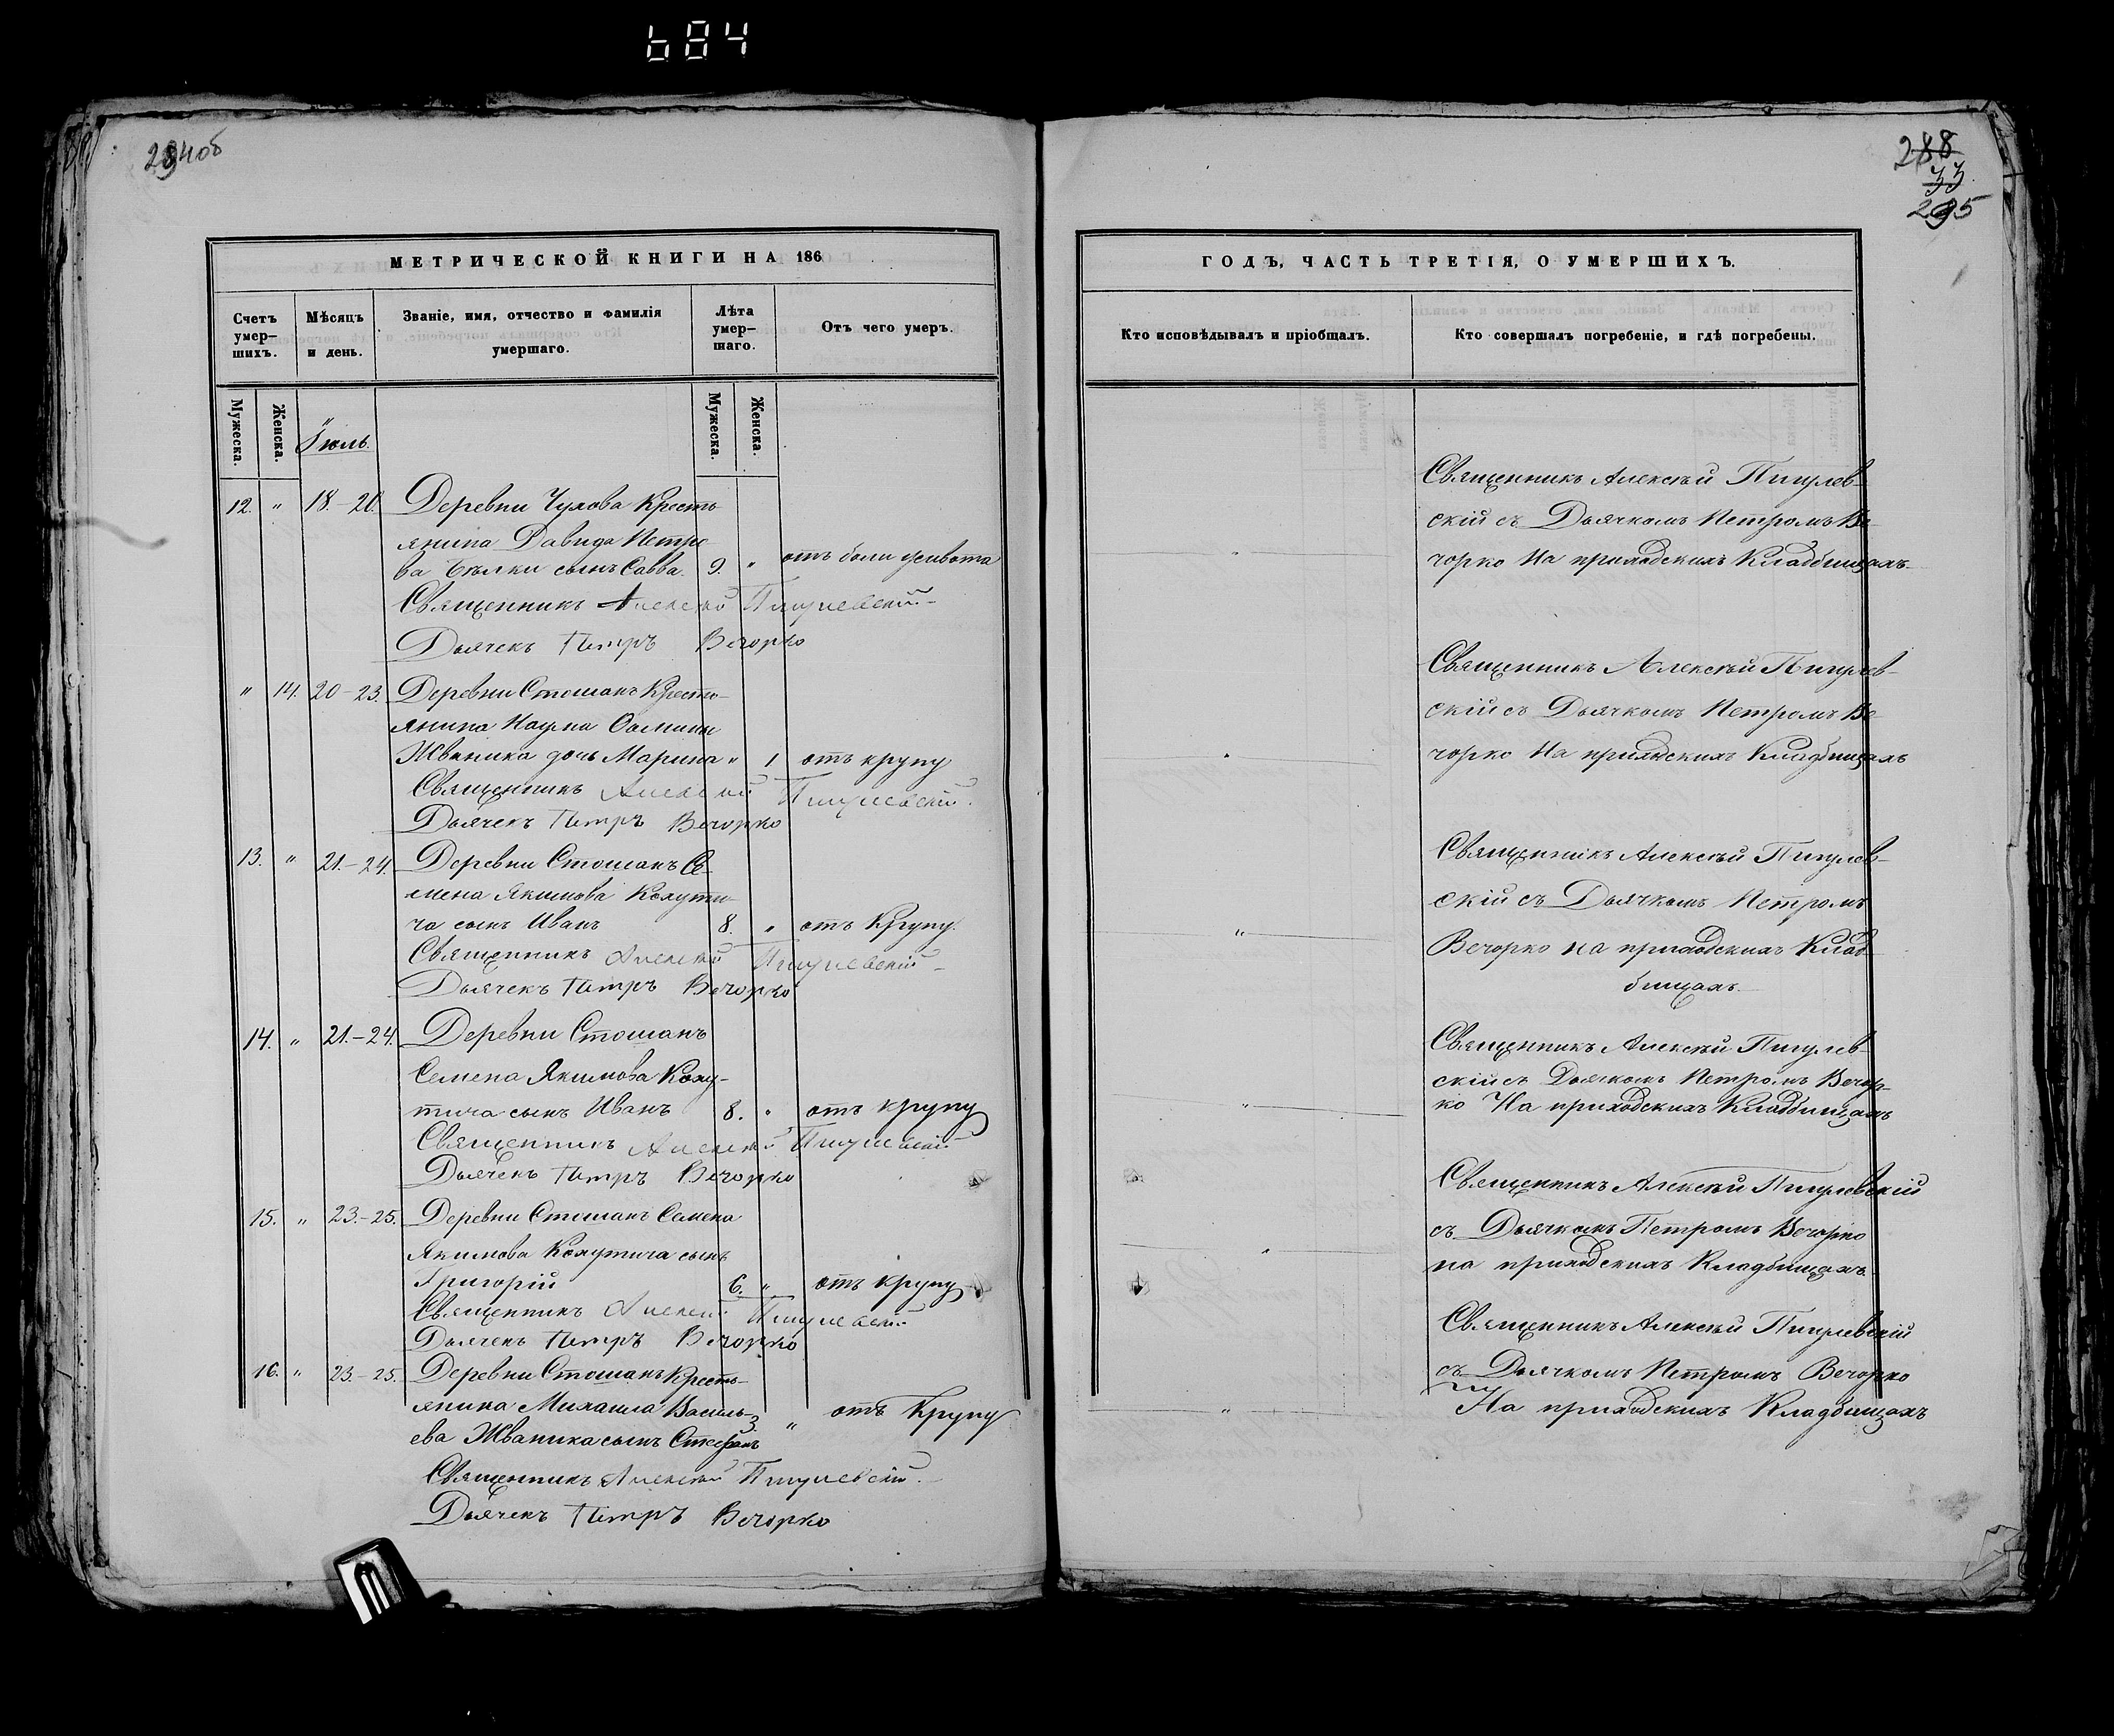 684
284об
288
33
295
МЕТРИЧЕСКОЙ КНИГИ НА 186
Счетъ умер-шихъ.
Мѣсяцъ и день.
Званіе, имя, отчество и фамилія умершаго.
Лѣта умер-шаго.
Отъ чего умеръ.
Мужеска.
Женска.
Іюль.
Мужеска.
Женска.
12. " 18.-20. Деревни Чухова Кресть
янина Давида Петро
ва Бѣлки сынъ Савва. 9. " отъ боли живота
Священникъ Алексѣй Пигулевскій
Дьячекъ Петръ Вечорко
" 14. 20-23. Деревни Стошанъ Кресть-
янина Наума
Жваника дочь Марина " 1 отъ крупу
Священникъ Алексѣй Пигулевскій.
Дьячекъ Петръ Вечорко
13. " 21.-24. Деревни Стошанъ Се-
мена Якимова Кохути-
ча сынъ Иванъ 8. " отъ Крупу.
Священникъ Алексѣй Пигулевскій
Дьячекъ Петръ Вечорко
14. " 21.-24. Деревни Стошанъ
Семена Якимова Коху-
тича сынъ Иванъ 8. " отъ крупу
Священникъ Алексѣй Пигулевскій
Дьячекъ Петръ Вечорко
15. " 23.-25. Деревни Стошанъ Семена
Якимова Кохутича сынъ
Григорій 6. " отъ крупу
Священникъ Алексѣй Пигулевскій
Дьячекъ Петръ Вечорко
16. " 23.-25. Деревни Стошанъ Кресть-
янина Михаила Василь-
ева Жваника сынъ Стефанъ 3 " отъ Крупу
Священникъ Алексѣй Пигулевскій.
Дьячекъ Петръ Вечорко
ГОДЪ, ЧАСТЬ ТРЕТІЯ, О УМЕРШИХЪ.
Кто исповѣдывалъ и пріобщалъ.
Кто совершалъ погребеніе, и гдѣ погребены.
Священникъ Алексѣй Пигулев-
скій съ Дьячкомъ Петромъ Ве-
" чорко На приходскихъ Кладбищахъ.
Священникъ Алексѣй Пигулев-
скій съ Дьячкомъ Петромъ Ве-
" чорко На приходскихъ Кладбищахъ
Священникъ Алексѣй Пигулев-
скій съ Дьячкомъ Петромъ
" Вечорко на приходскихъ Клад-
бищахъ.
Священникъ Алексѣй Пигулев-
скій съ Дьячкомъ Петромъ Вечор-
" ко На приходскихъ Кладбищахъ
Священникъ Алексѣй Пигулевскій
съ Дьячкомъ Петромъ Вечорко
" на приходскихъ Кладбищахъ.
Священникъ Алексѣй Пигулевскій
съ Дьячкомъ Петромъ Вечорко
" На приходскихъ Кладбищахъ